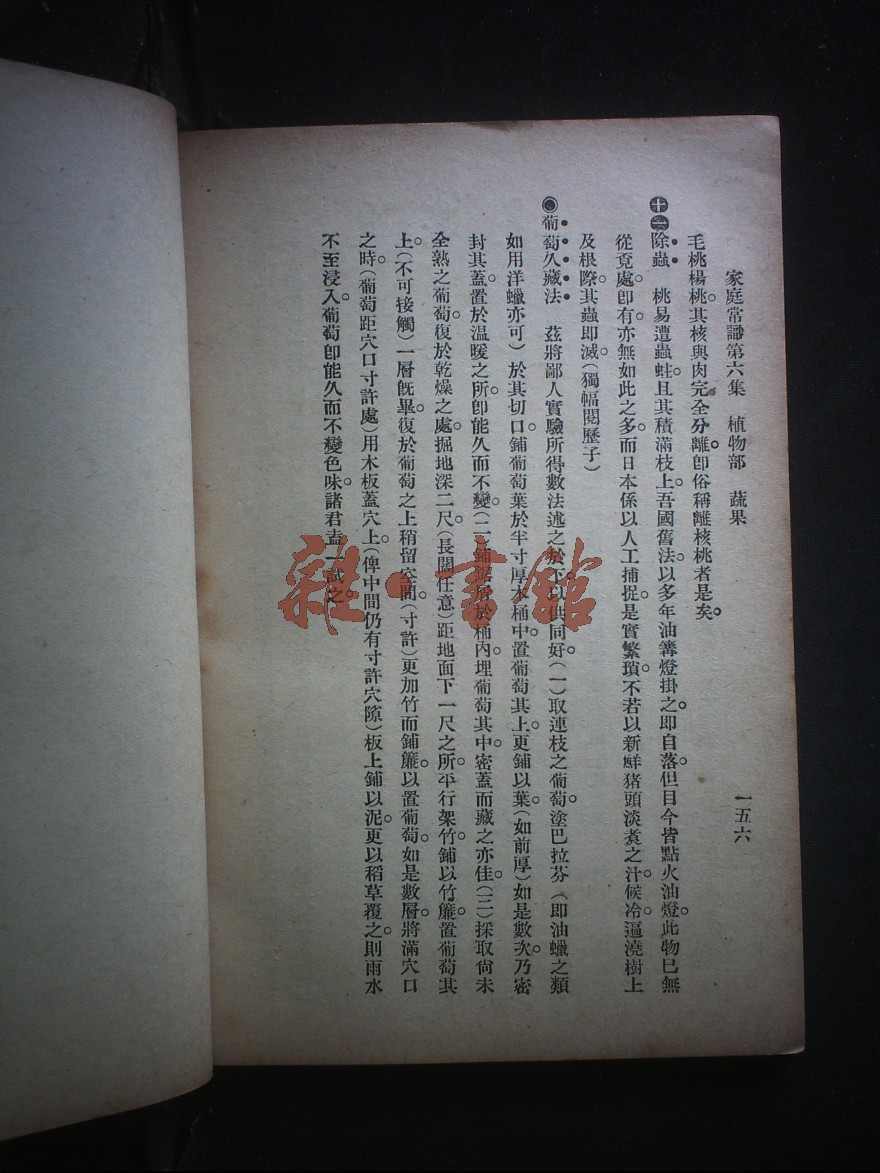 家庭常識第六集　植物部　蔬果　一五六
毛桃楊桃。其核與肉完全分離。卽俗稱離核桃者是矣。
十一除蟲　桃易遭蟲蛀。且其積滿枝上。吾國舊法。以多年油篝燈掛之。卽自落。但目今皆點火油燈。此物已無
從覓處。卽有。亦無如此之多。而日本係以人工捕捉。是實繁瑣。不若以新鮮猪頭淡煮之汁。候冷。逼澆樹上
及根際。其蟲卽滅（獨幅閱歷子）
◉葡萄久藏法　茲將鄙人實驗所得數法述之於下。以供同好（一）取連枝之葡萄。塗巴拉芬（卽油蠟之類
如用洋蠟亦可）於其切口。鋪葡萄葉於半寸厚木桶中。置葡萄其上。更鋪以葉（如前厚）如是數次。乃密
封其蓋。置於温暖之所。卽能久而不變（二）鋪鋸屑於桶內。埋葡萄其中。密蓋而藏之亦佳（三）採取尙未
全熟之葡萄。復於乾燥之處。掘地深二尺。（長闊任意）距地面下一尺之所。平行架竹。鋪以竹簾。置葡萄其
上。（不可接觸）一層旣畢。復於葡萄之上稍留空間（寸許）更加竹而鋪簾。以置葡萄。如是數層。將滿穴口
之時（葡萄距穴口寸許處）用木板蓋穴上。（俾中間仍有寸許穴隙）板上鋪以泥。更以稻草覆之。則雨水
不至浸入。葡萄卽能久而不變色味。諸君盍一試之。
雜·書館